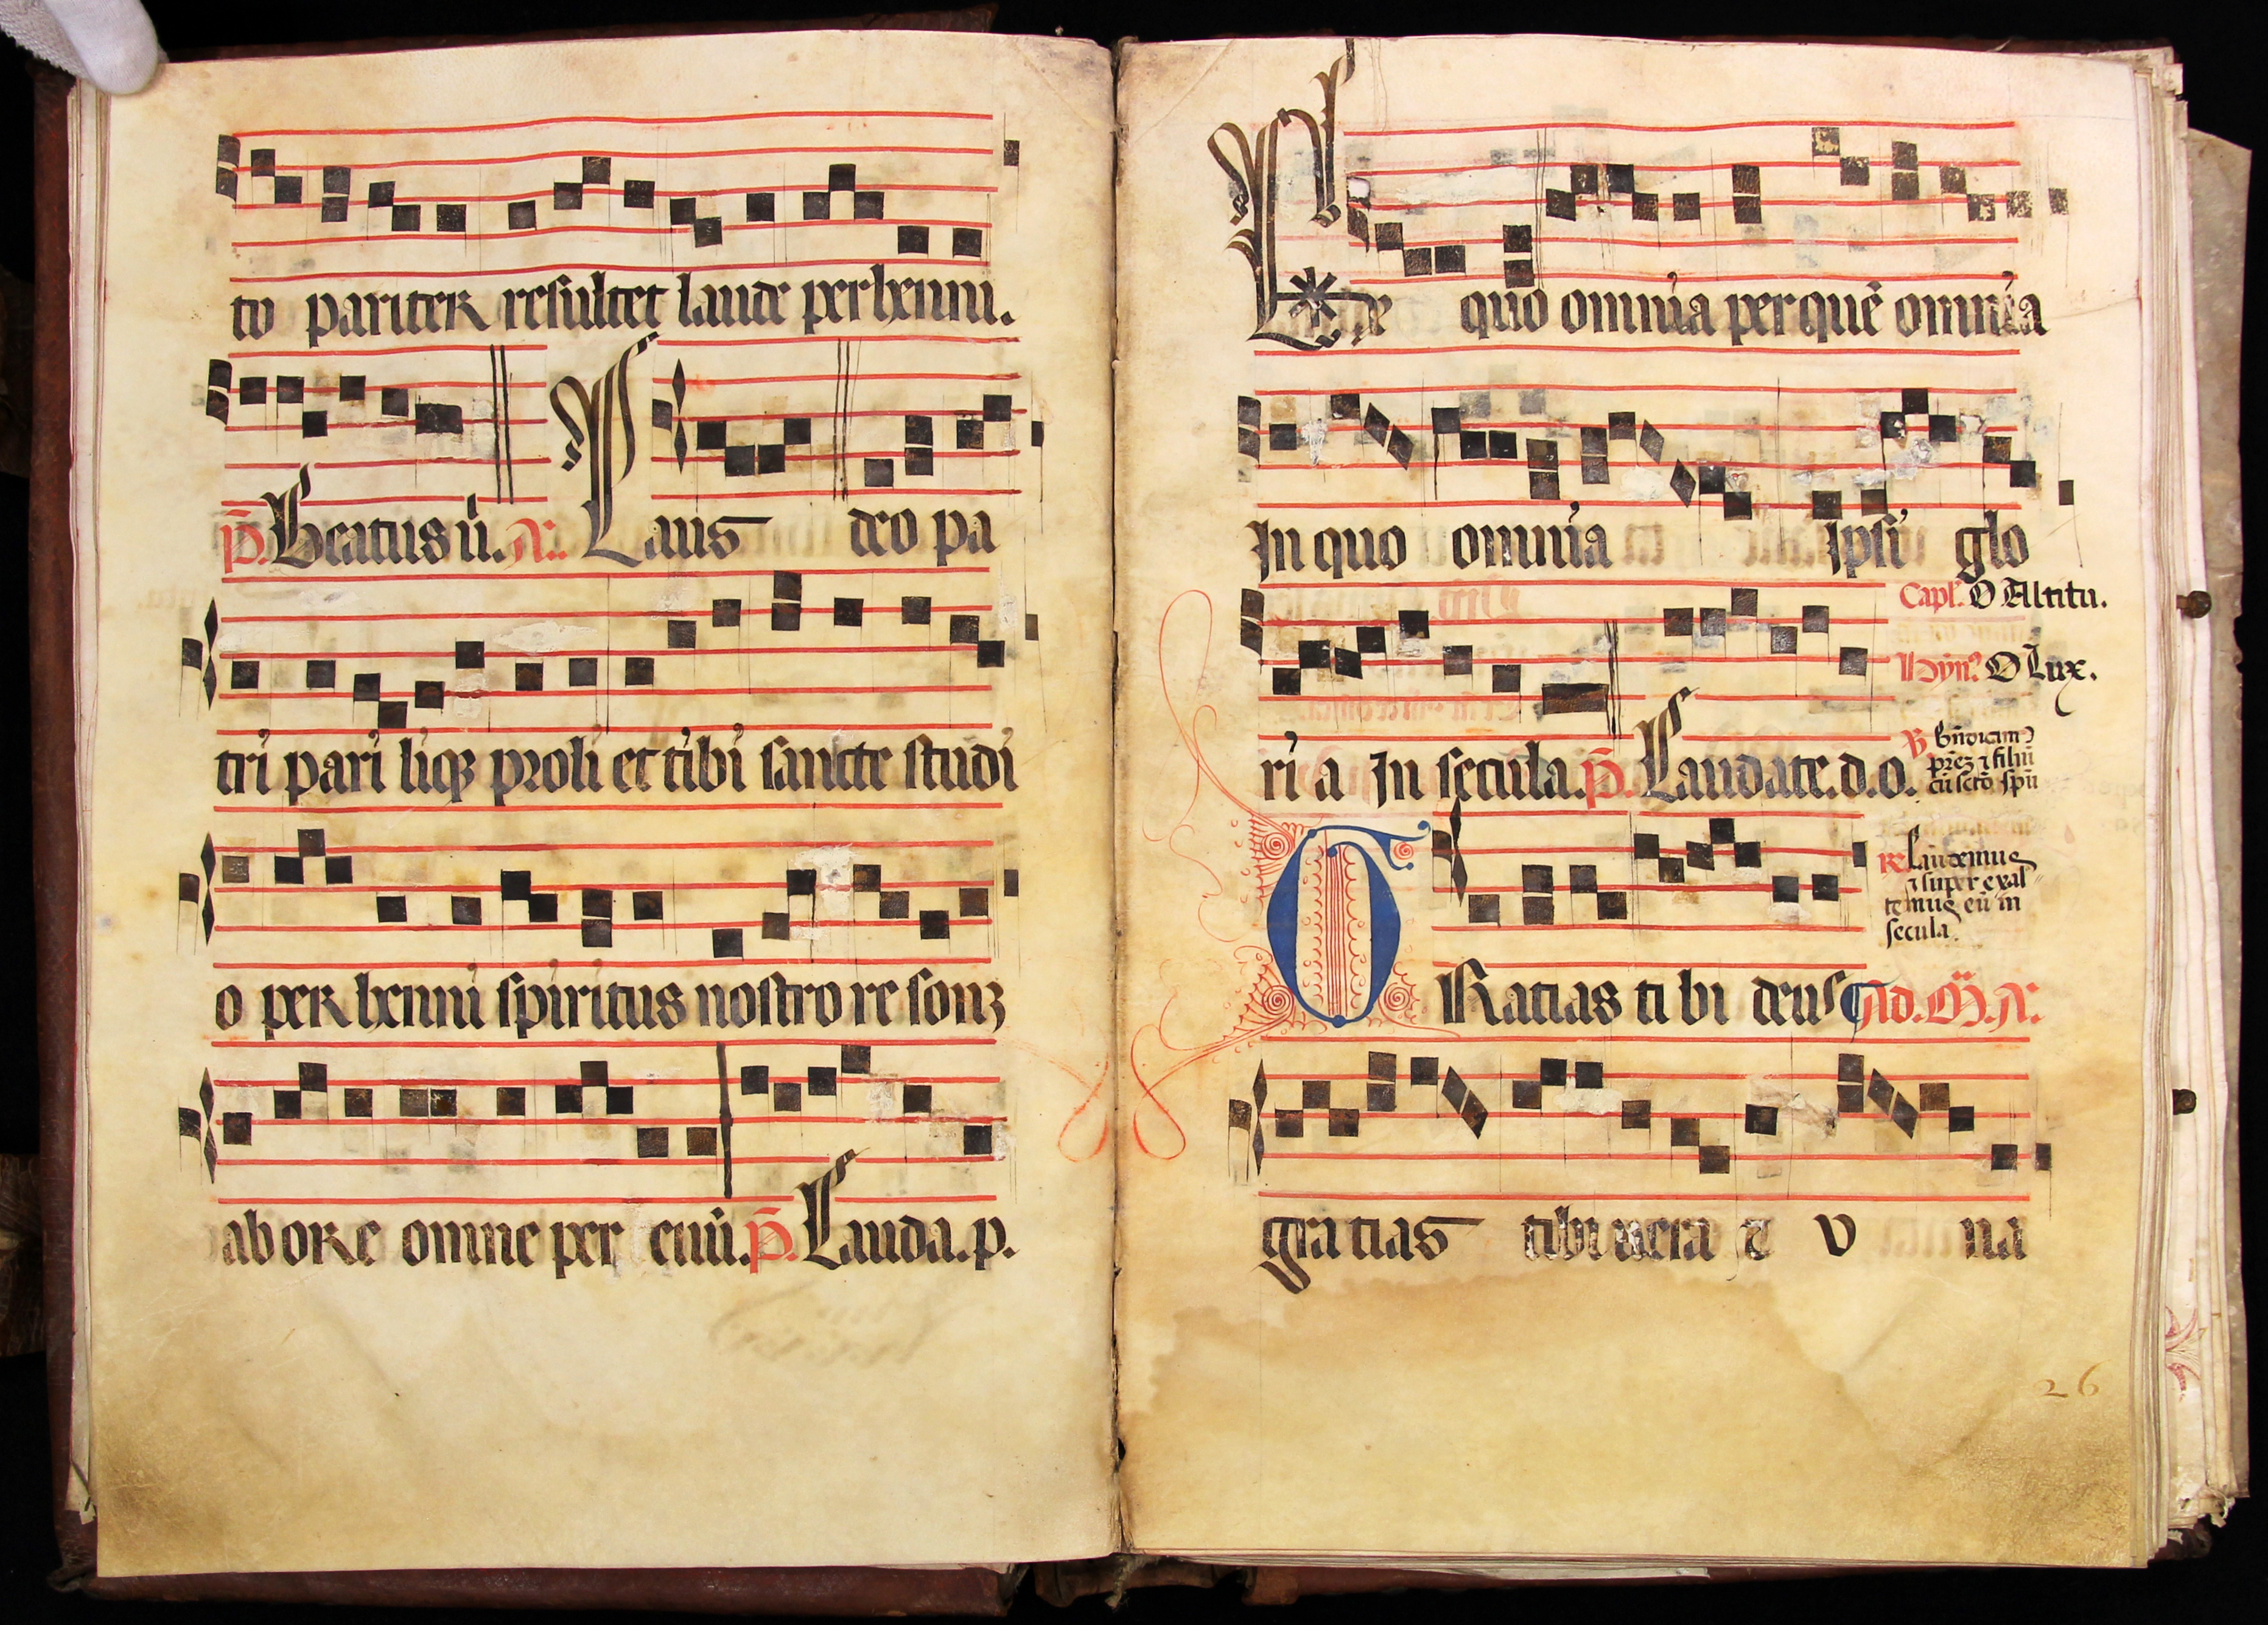 to pariter resultet laude perhenni.
p̄. Beatus ii. A. Laus deo pa
tri pari liqꝫ proli et tibi sancte studi
o per henni spiritus nostro re sonꝫ
ab ore omne per euū. p̄. Lauda. p.
Ex quo omnia per quē omnia
In quo omnia Ipsi glo
Capl. O Altitu.
Hyn. O Lux.
ri a In secula. p̄. Laudate. d. o.
B̄ndicam⁹
prēꝫ ⁊ filiū
cū scto spū
℟ Laudemus
⁊ super exal
temus eū in
secula.
G Ratias ti bi deus Ad. M̄. A.
gra tias tibi uera ⁊ v na
26